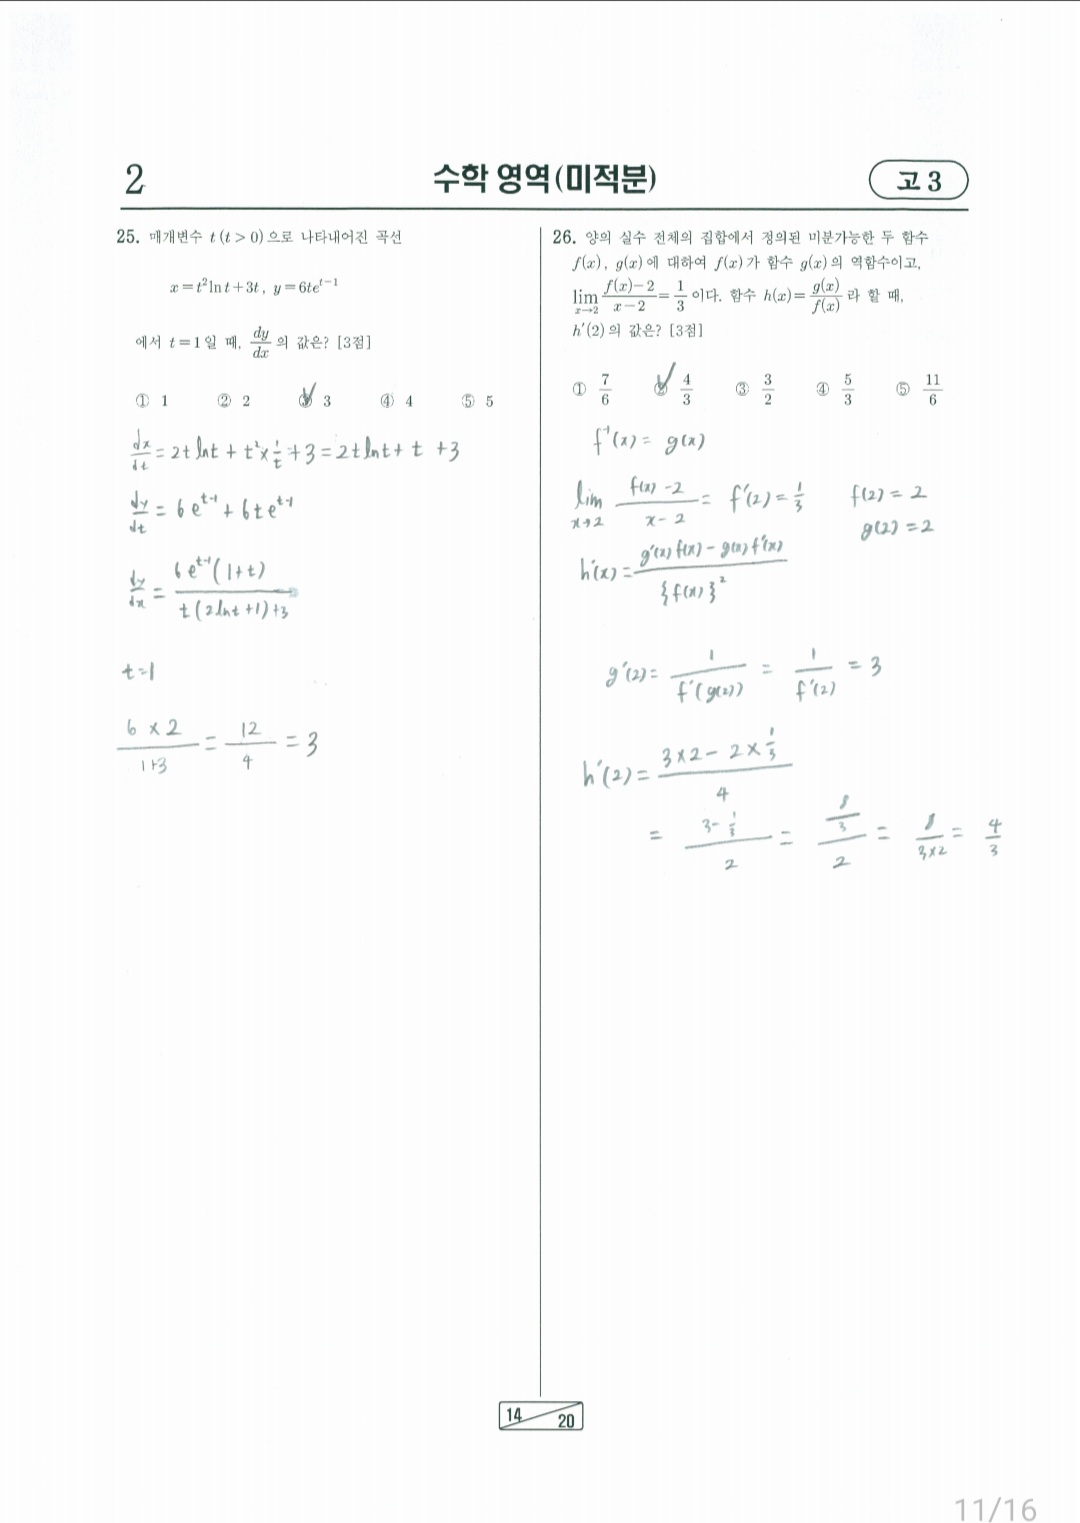 2
수학 영역(미적분)
고 3
25. 매개변수 t (t > 0)으로 나타내어진 곡선
x = t²ln t + 3t, y = 6te^{t-1}
에서 t = 1일 때, dy/dx 의 값은? [3점]
① 1 ② 2 ③ 3 ④ 4 ⑤ 5
dx/dt = 2t ln t + t² × 1/t + 3 = 2t ln t + t + 3
dy/dt = 6e^{t-1} + 6te^{t-1}
dy/dx = 6e^{t-1}(1+t) / t(2lnt+1)+3
t=1
6 × 2 / 1+3 = 12/4 = 3
26. 양의 실수 전체의 집합에서 정의된 미분가능한 두 함수
f(x), g(x)에 대하여 f(x)가 함수 g(x)의 역함수이고,
lim x→2 f(x)-2 / x-2 = 1/3 이다. 함수 h(x) = g(x)/f(x) 라 할 때,
h′(2)의 값은? [3점]
① 7/6 ② 4/3 ③ 3/2 ④ 5/3 ⑤ 11/6
f⁻¹(x) = g(x)
lim x→2 f(x)-2 / x-2 = f′(2) = 1/3 f(2) = 2
g(2) = 2
h′(x) = g′(x)f(x) - g(x)f′(x) / {f(x)}²
g′(2) = 1 / f′(g(2)) = 1 / f′(2) = 3
h′(2) = 3×2 - 2×1/3 / 4
= 3 - 1/3 / 2 = 8/3 / 2 = 8 / 3×2 = 4/3
14 20
11/16